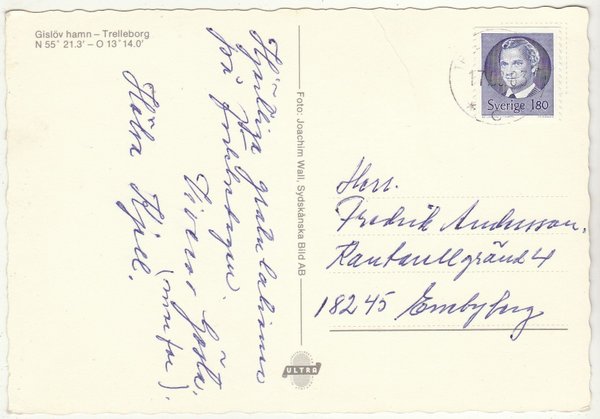 Gislöv hamn – Trelleborg
N 55° 21.3' – O 13° 14.0'
Hjärtliga gratulationer
på födelsedagen.
Gösta.
Hälsa Kjell.
Foto: Joachim Wall, Sydskånska Bild AB
17
C
Sverige 180
Herr.
Fredrik Andersson.
Rantarellgränd 4
18245 Enebyberg
ULTRA